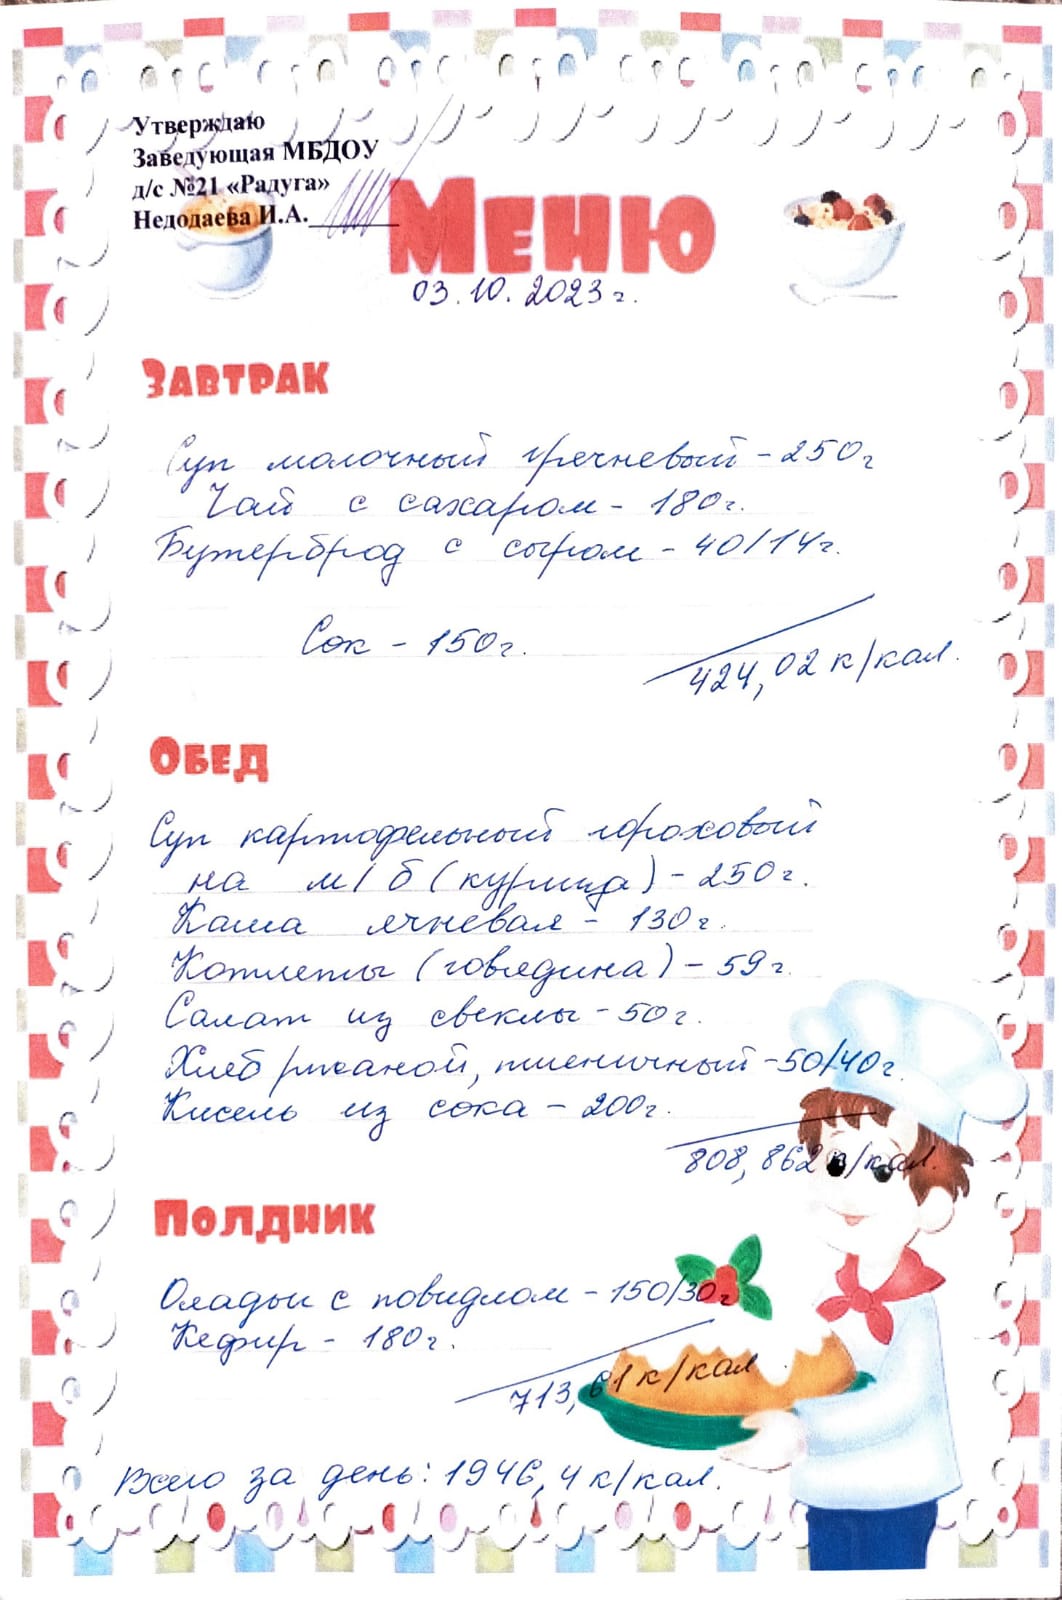 Утверждаю
Заведующая МБДОУ
д/с №21 «Радуга»
Недодаева И.А.
Меню
03.10.2023г.
Завтрак
Суп молочный гречневый - 250г
Чай с сахаром - 180г.
Бутерброд с сыром - 40/14г.
Сок - 150г.
424,02 к/кал.
Обед
Суп картофельный гороховый
на м/б (курица) - 250г.
Каша ячневая - 130г.
Котлеты (говядина) - 59г.
Салат из свеклы - 50г.
Хлеб ржаной, пшеничный - 50/40г.
Кисель из сока - 200г.
808,862 к/кал.
Полдник
Оладьи с повидлом - 150/30г
Кефир - 180г.
713,61 к/кал
Всего за день: 1946,4 к/кал.